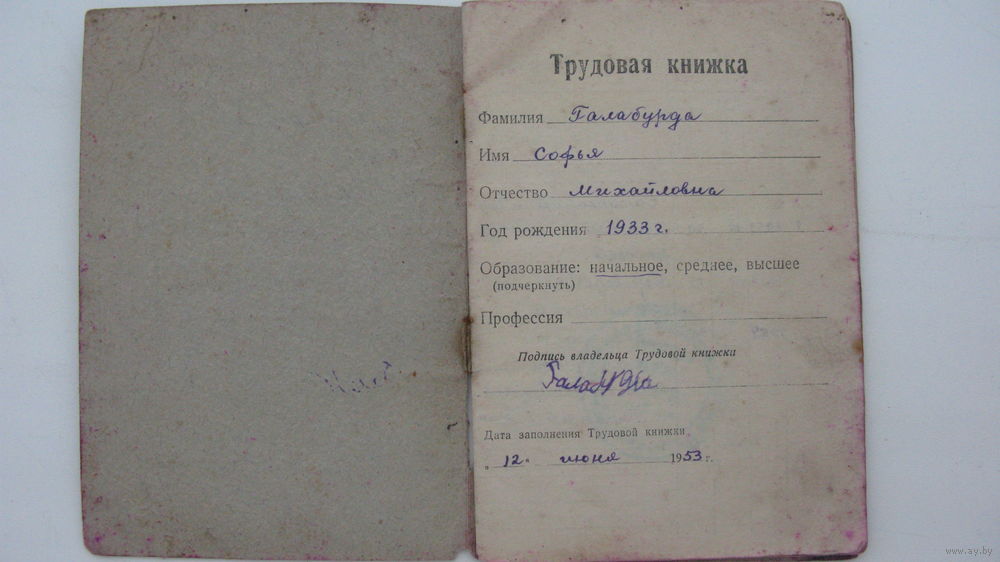 Трудовая книжка
Фамилия Галабурда
Имя Софья
Отчество Михайловна
Год рождения 1933 г.
Образование: начальное, среднее, высшее
(подчеркнуть)
Профессия
Подпись владельца Трудовой книжки
Галабурда
Дата заполнения Трудовой книжки
„12“ июня 1953 г.
www.ay.by